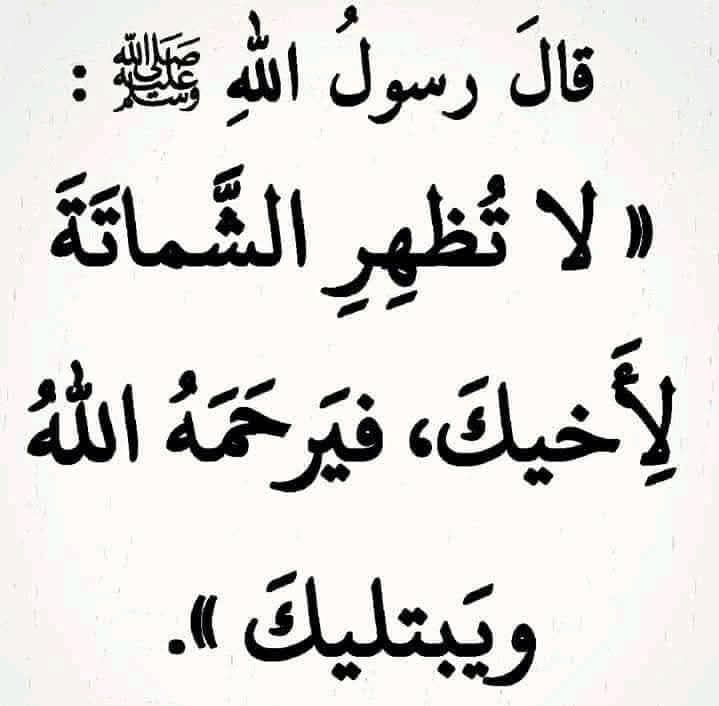 قالَ رسولُ اللهِ ﷺ :
« لا تُظهِرِ الشَّماتَةَ
لِأَخيكَ، فيَرحَمَهُ اللهُ
ويَبتليكَ ».